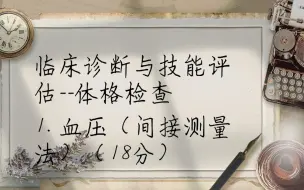 临床诊断与技能评
估--体格检查
1. 血压（间接测量
法）（18分）